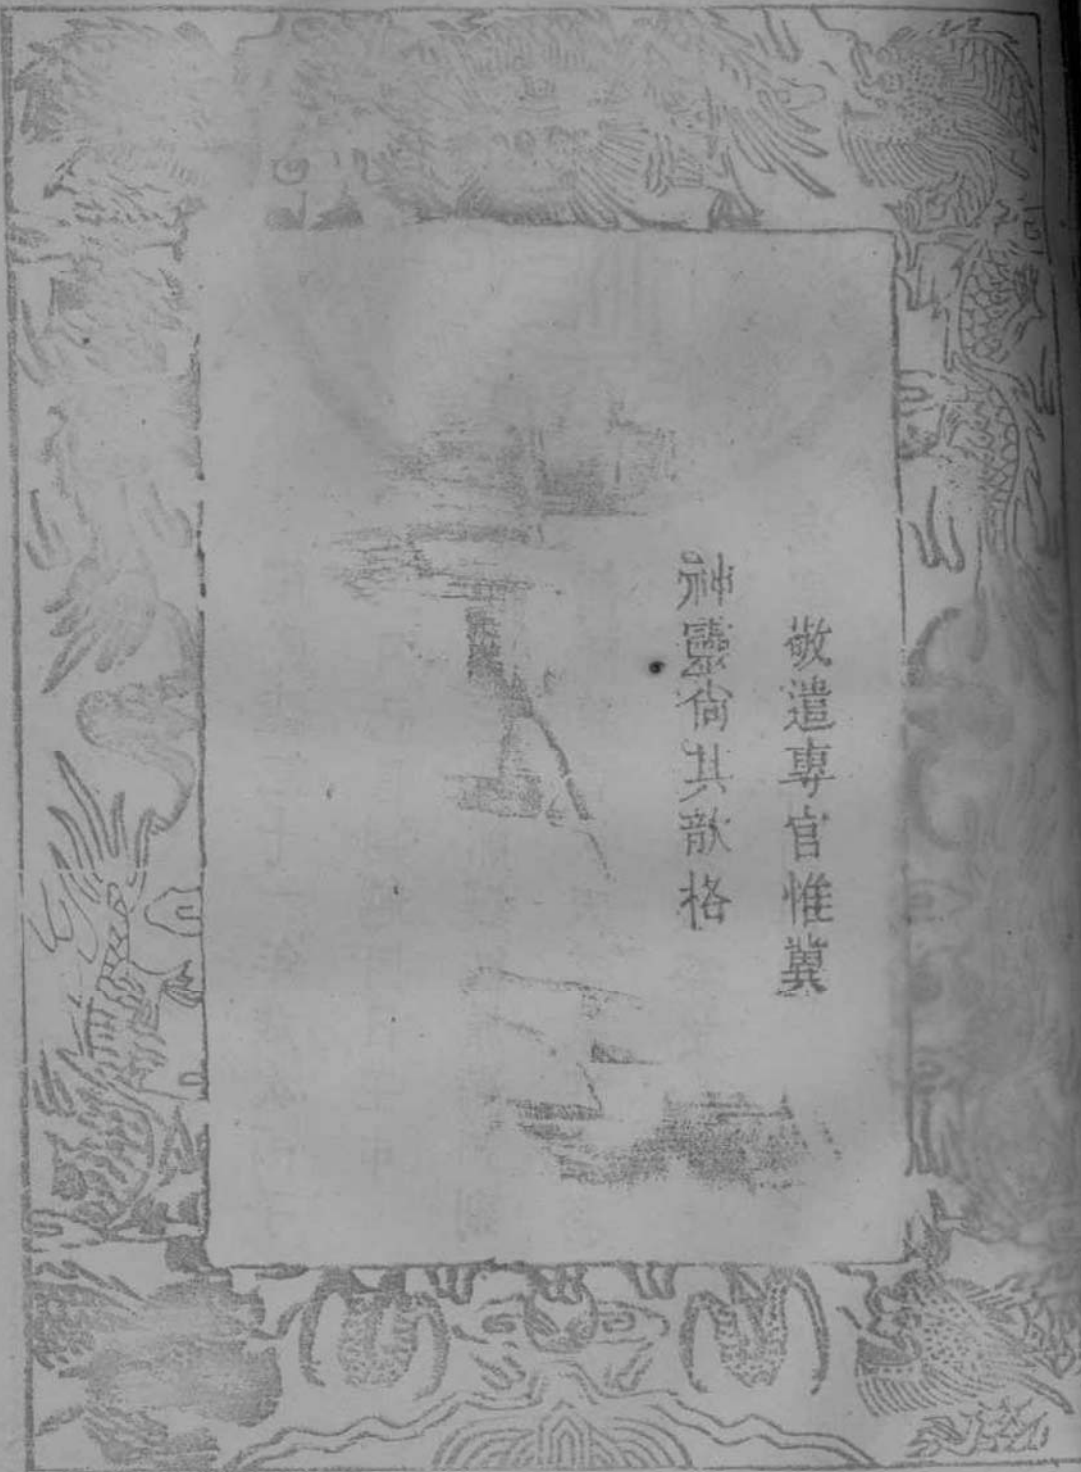 敬遣專官惟冀
神靈尙其歆格